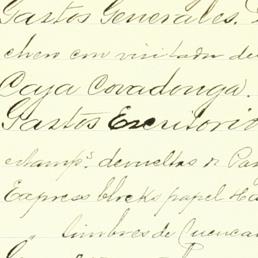 Gastos Generales.
con visitador de
Caja Covadonga.
Gastos Escritorio
estamps. devueltas a Pa
Express blocks papel
" timbres de Cuenca